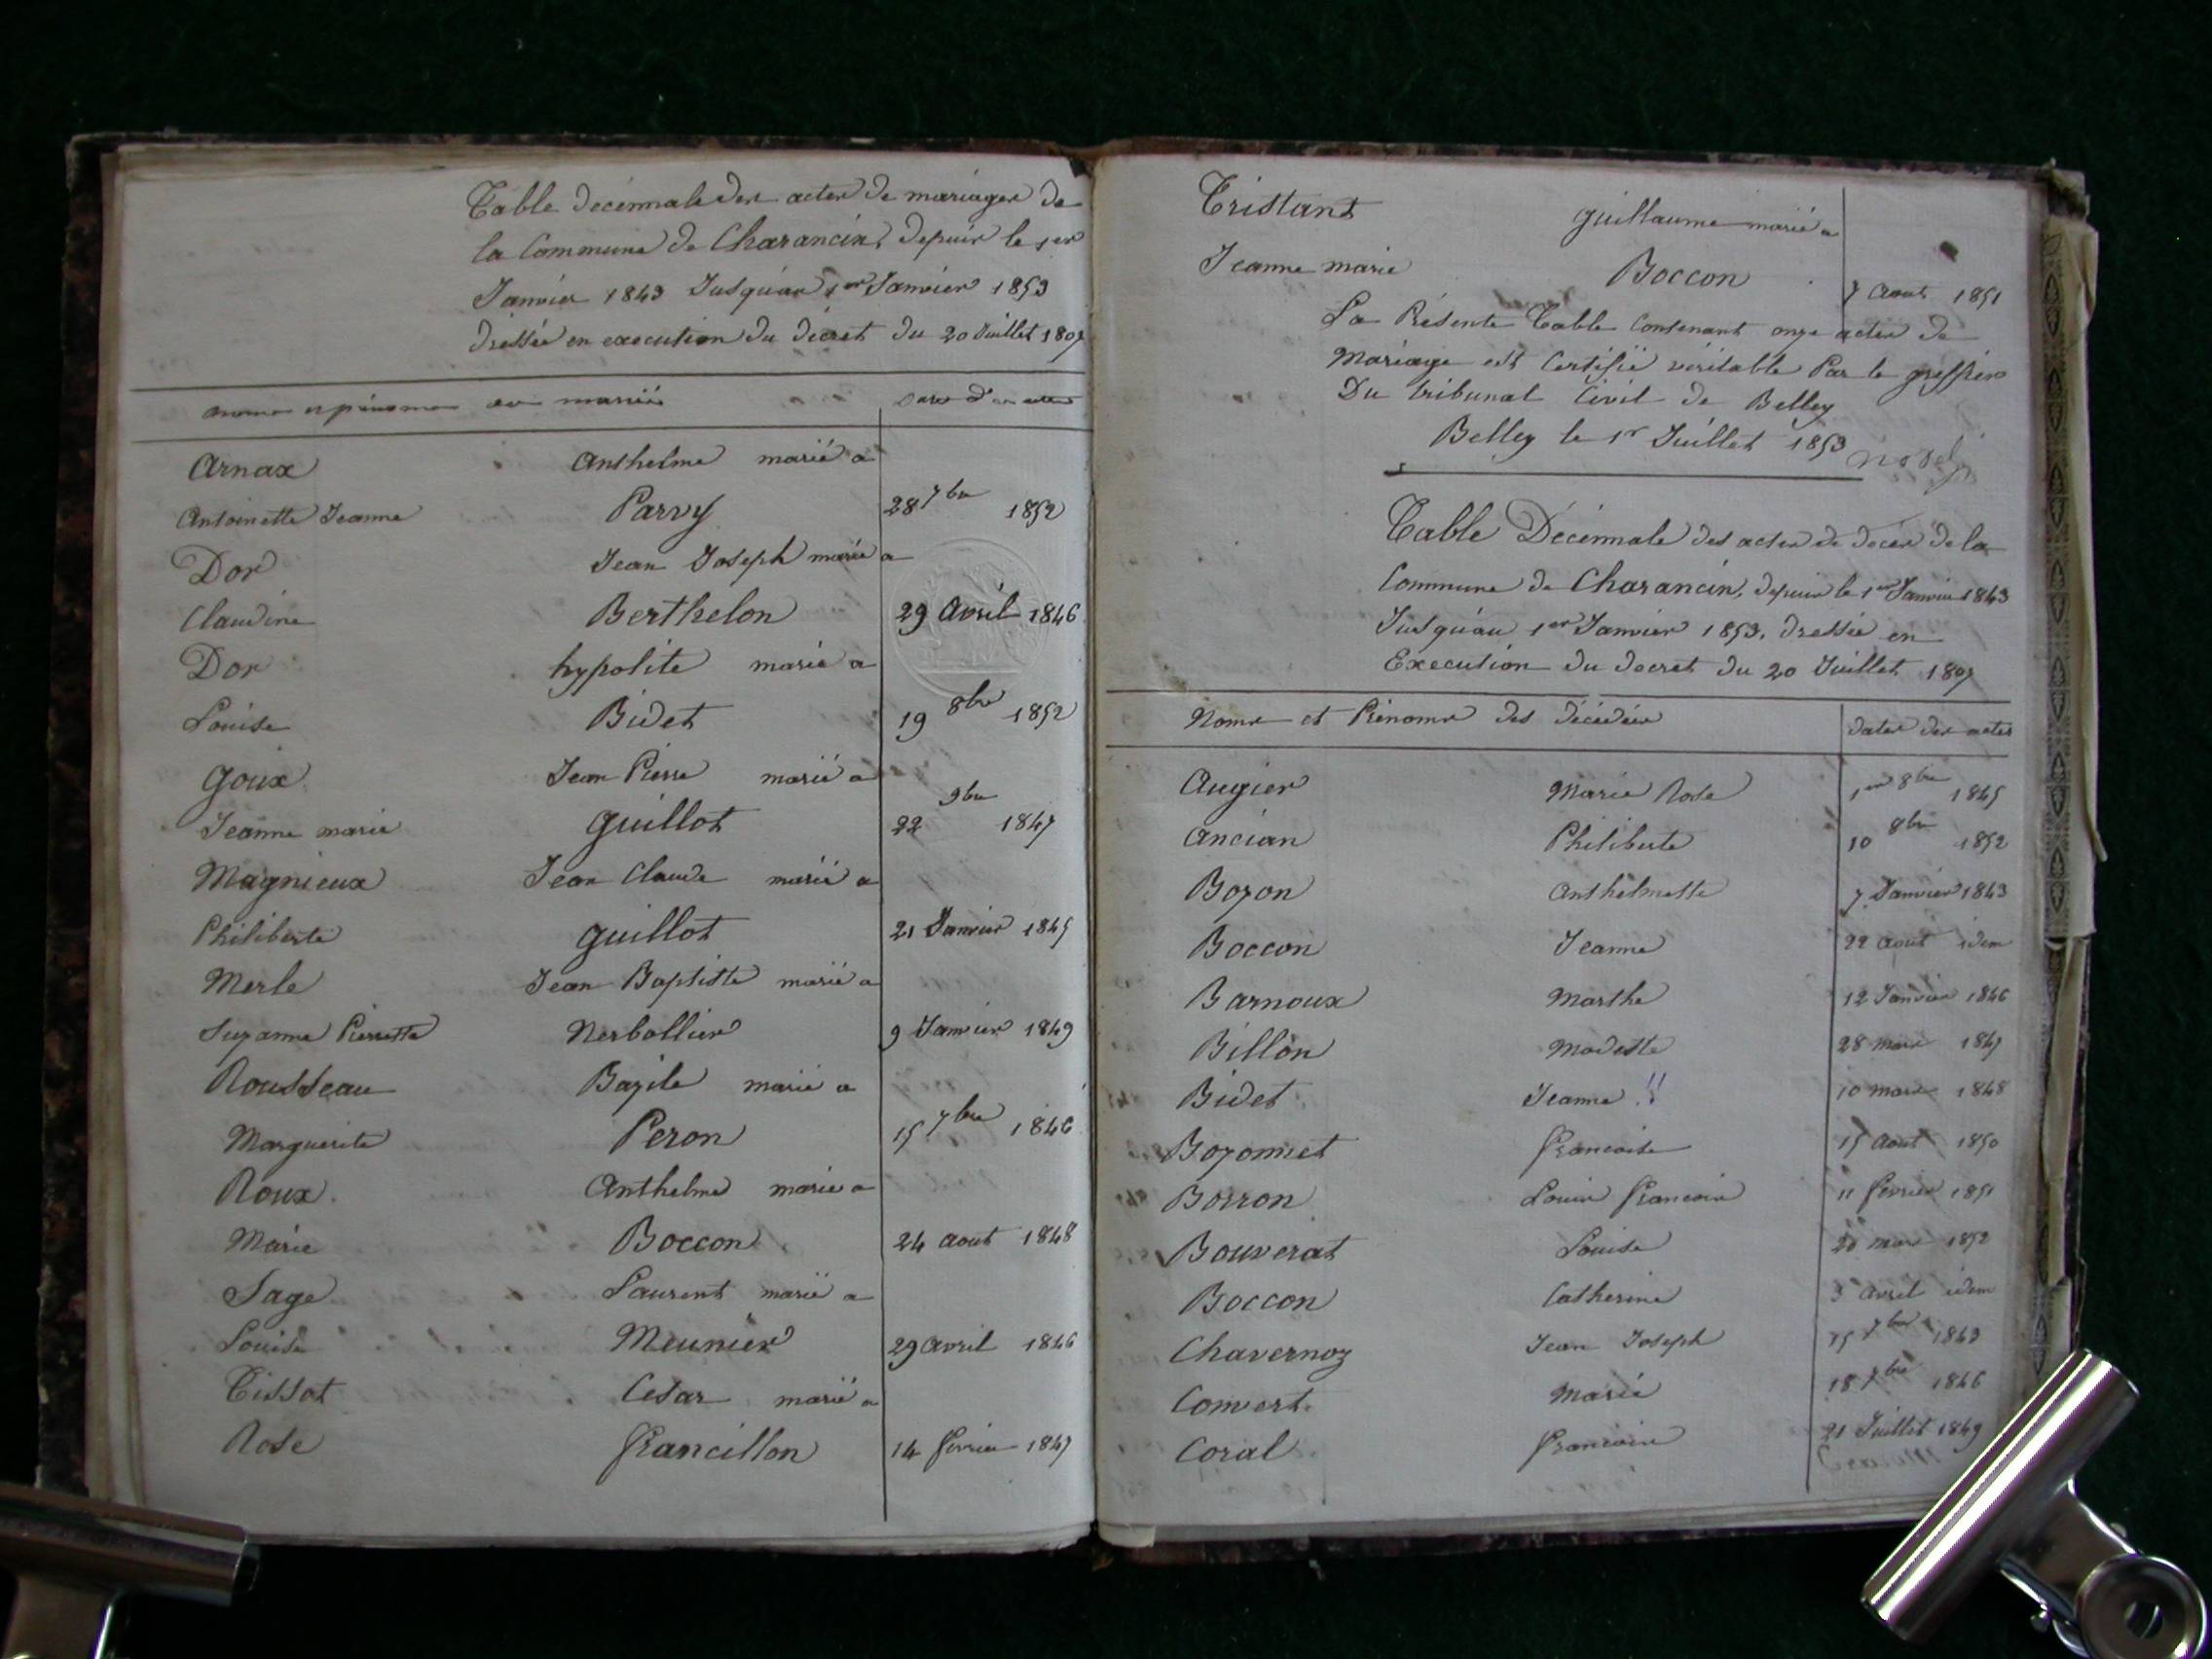 Table décennale des actes de mariages de
la Commune de Charancin, depuis le 1er
Janvier 1843 Jusquau 1er Janvier 1853
dressée en execution du décret du 20 Juillet 1807
noms et prénoms des mariés dates des actes
Arnax Anthelme marié a
Antoinette Jeanne Parvy 28 7bre 1852
Dor Jean Joseph marié a
Claudine Berthelon 29 Avril 1846
Dor hypolite marié a
Louise Bidet 19 8bre 1852
Goux Jean Pierre marié a
Jeanne marie Guillot 22 9bre 1847
Magnieux Jean Claude marié a
Philiberte Guillot 21 Janvier 1845
Merle Jean Baptiste marié a
Suzanne Pierrette Nerbollier 9 Janvier 1849
Rousseau Bazile marié a
Marguerite Peron 15 7bre 1846
Roux Anthelme marié a
Marie Boccon 24 aout 1848
Sage Laurent marié a
Louise Meunier 29 avril 1846
Tissot Cesar marié a
Rose francillon 14 fevrier 1847
Tristant guillaume marié a
Jeanne marie Boccon 7 Aout 1851
La Présente Table Contenant onze actes de
Mariage est Certifié véritable Par le greffier
Du tribunal Civil de Belley
Belley le 1r Juillet 1853
Table Décennale des actes de décès de la
Commune de Charancin, depuis le 1er Janvier 1843
Jusquau 1er Janvier 1853, dressée en
Execution du decret du 20 Juillet 1807
Noms et Prénoms des décédés dates des actes
Augier Marie Rose 1er 8bre 1845
Ancian Philiberte 10 8bre 1852
Bozon Anthelmette 7 Janvier 1843
Boccon Jeanne 22 aout idem
Barnoux Marthe 12 Janvier 1846
Billon Modeste 28 mars 1847
Bidet Jeanne !! 10 mars 1848
Bozonnet francoise 15 Aout 1850
Borron Louis francois 11 fevrier 1851
Bouverat Louise 20 mars 1852
Boccon Catherine 3 avril idem
Chavernoz Jean Joseph 15 7bre 1843
Convert Marie 18 7bre 1846
Coral francois 21 Juillet 1849